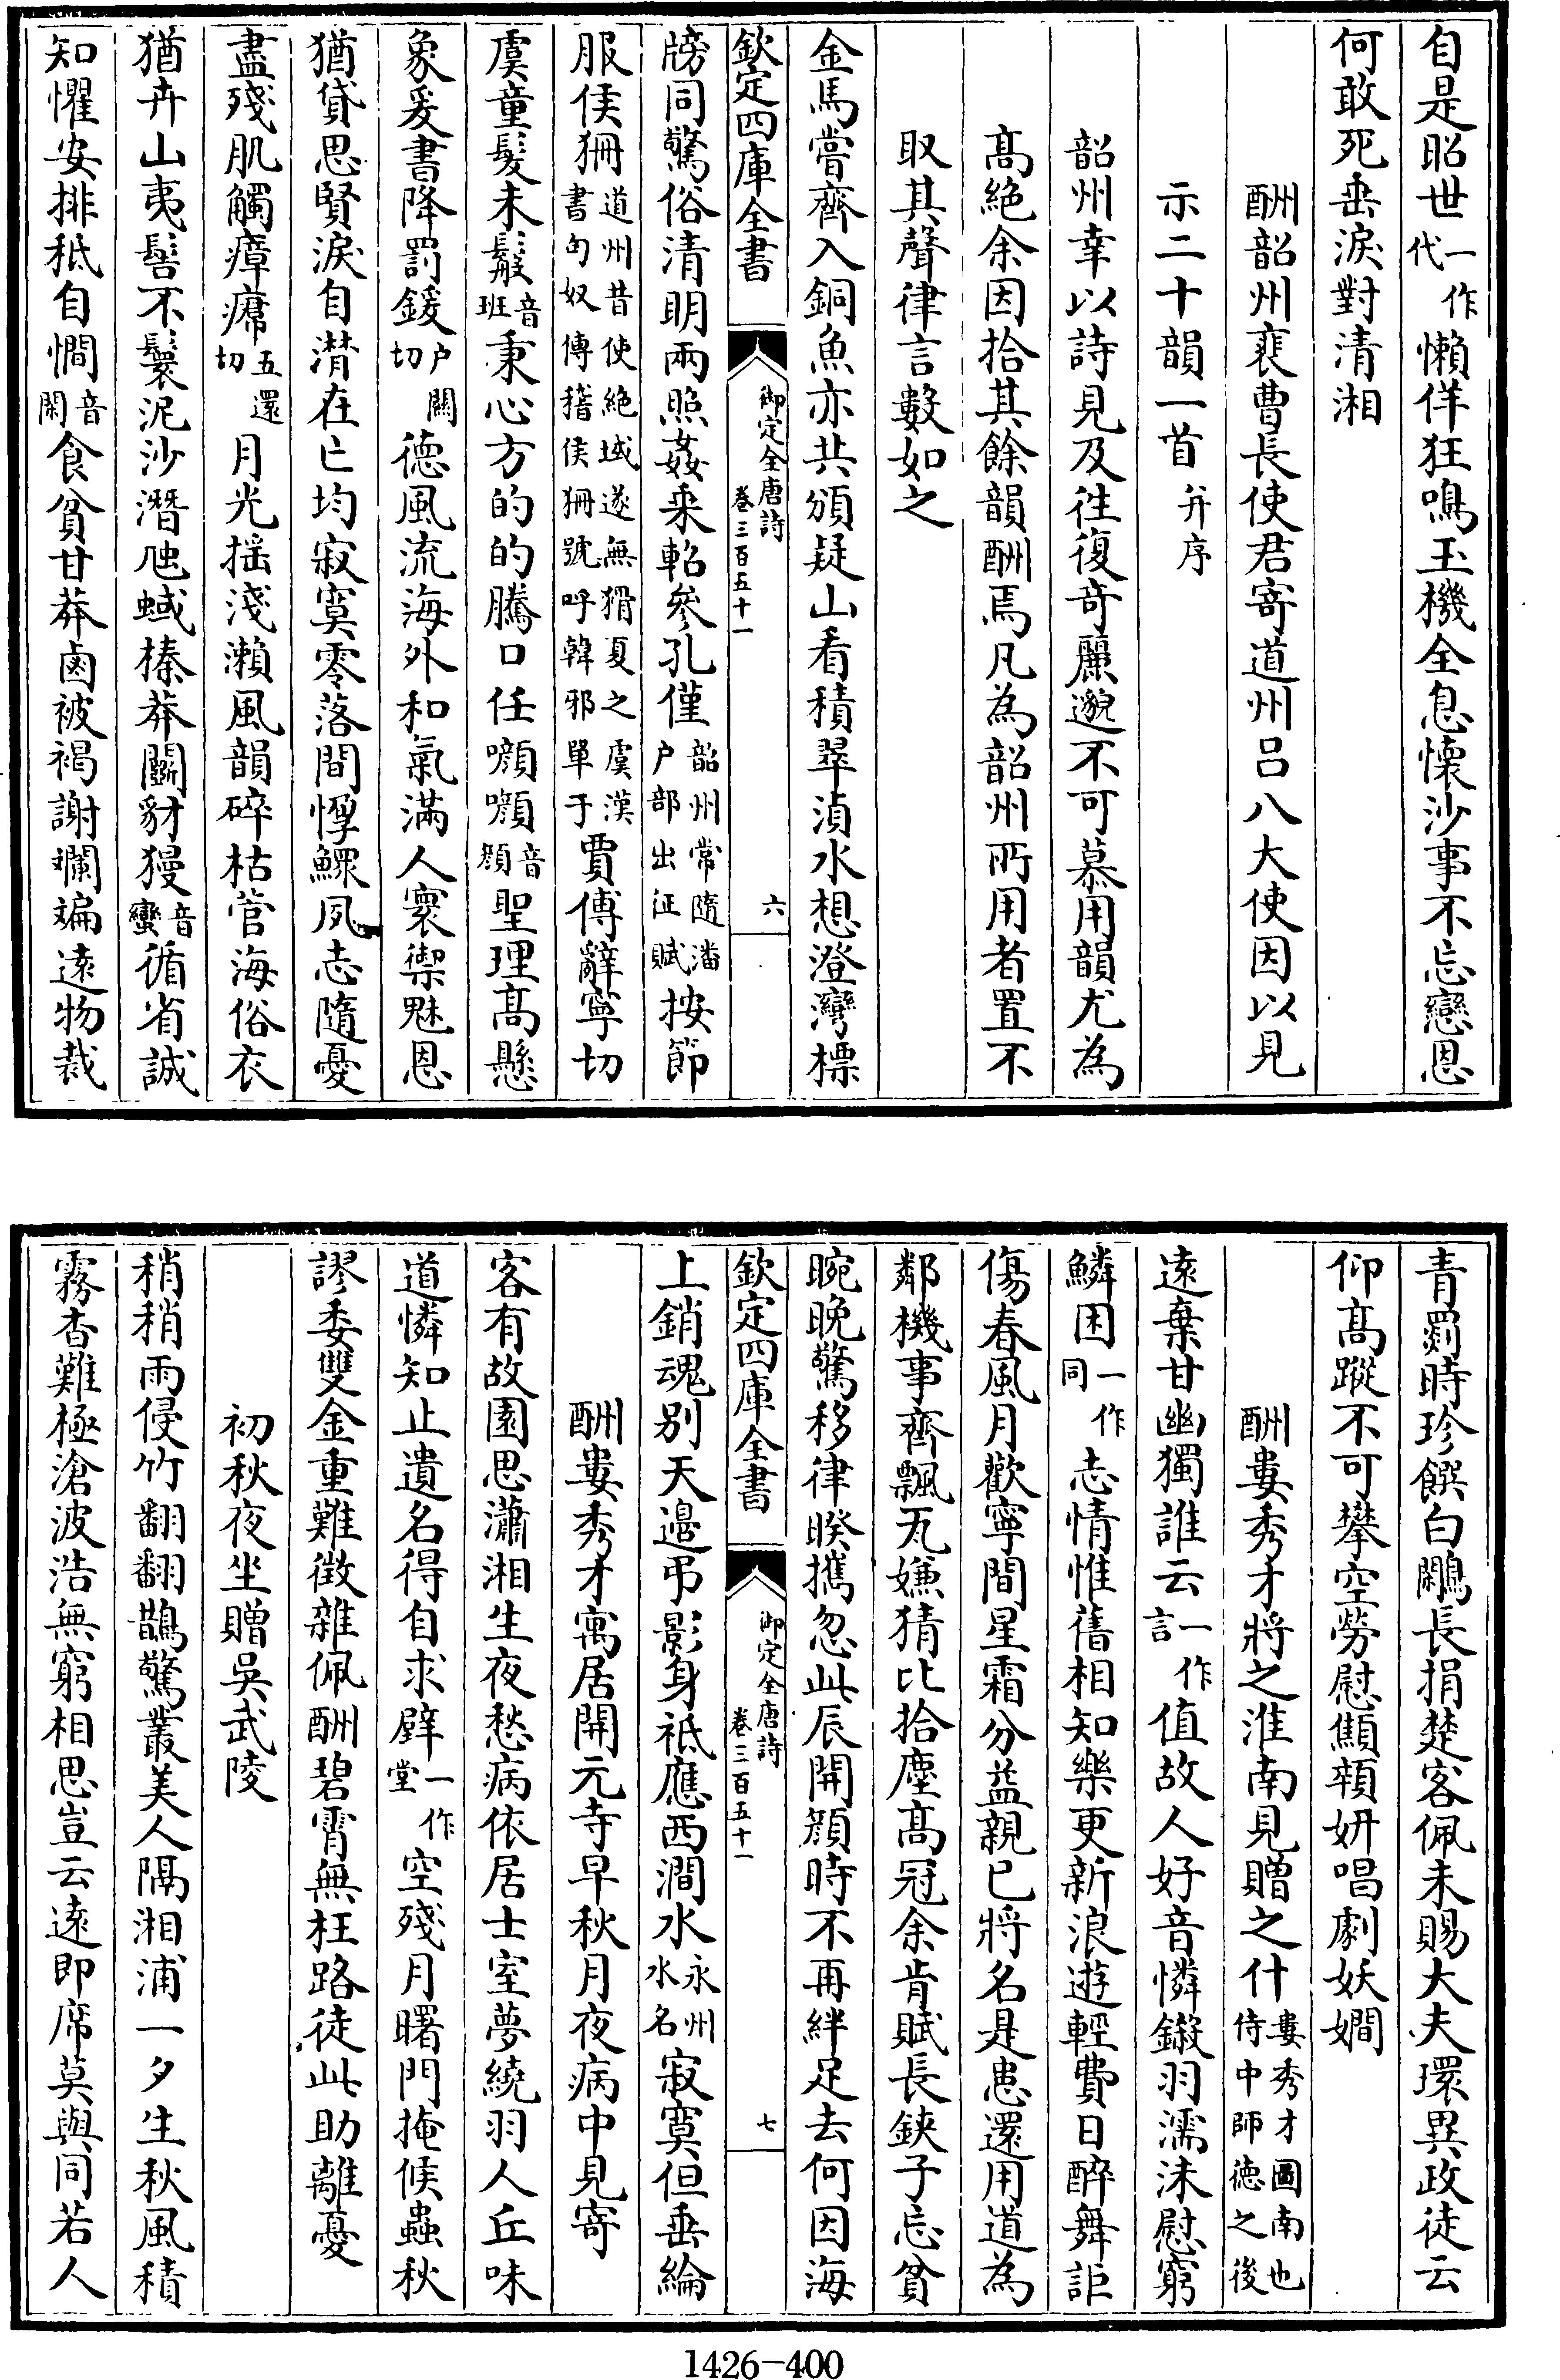 自是昭世一作代懶佯狂鳴玉機全息懷沙事不忘戀恩
何敢死垂淚對清湘
酬韶州裴曹長使君寄道州吕八大使因以見
示二十韻一首并序
韶州幸以詩見及往復奇麗邈不可慕用韻尤為
髙絶余因拾其餘韻酬焉凡為韶州所用者置不
取其聲律言數如之
金馬嘗齊入銅魚亦共頒疑山看積翠湞水想澄灣標
欽定四庫全書
御定全唐詩
卷三百五十一
六
牓同驚俗清明兩照姦乘軺參孔僅韶州常隨潘户部出征賦按節
服侯狦道州昔使絶域遂無猾夏之虞漢書匈奴傳稽侯狦號呼韓邪單于賈傅辭寧切
虞童髮未鬉音班秉心方的的騰口任嚬嚬音顔聖理髙懸
象爰書降罰鍰户關切德風流海外和氣滿人寰禦魅恩
猶貸思賢淚自潸在亡均寂寞零落間惸鰥夙志隨憂
盡殘肌觸瘴㾕五還切月光揺淺瀨風韻碎枯菅海俗衣
猶卉山夷髻不鬟泥沙潛虺蜮榛莽鬭豺獌音蠻循省誠
知懼安排秪自憪音閑食貧甘莽鹵被褐謝斒斕遠物裁
青罽時珍饌白鷴長捐楚客佩未賜大夫環異政徒云
仰髙蹤不可攀空勞慰顦顇妍唱劇妖嫺
酬婁秀才將之淮南見贈之什婁秀才圖南也侍中師德之後
遠棄甘幽獨誰云一作言值故人好音憐鎩羽濡沫慰窮
鱗困一作同志情惟舊相知樂更新浪遊輕費日醉舞詎
傷春風月歡寧間星霜分益親已將名是患還用道為
鄰機事齊飄瓦嫌猜比拾塵髙冠余肯賦長鋏子忘貧
晼晚驚移律暌攜忽此辰開顔時不再絆足去何因海
欽定四庫全書
御定全唐詩
卷三百五十一
七
上銷魂别天邉弔影身祇應西澗水永州水名寂寞但垂綸
酬婁秀才寓居開元寺早秋月夜病中見寄
客有故園思瀟湘生夜愁病依居士室夢繞羽人丘味
道憐知止遺名得自求壁一作堂空殘月曙門掩候蟲秋
謬委雙金重難徴雜佩酬碧霄無枉路徒此助離憂
初秋夜坐贈吳武陵
稍稍雨侵竹翻翻鵲驚叢美人隔湘浦一夕生秋風積
霧杳難極滄波浩無窮相思豈云遠即席莫與同若人
1426-400